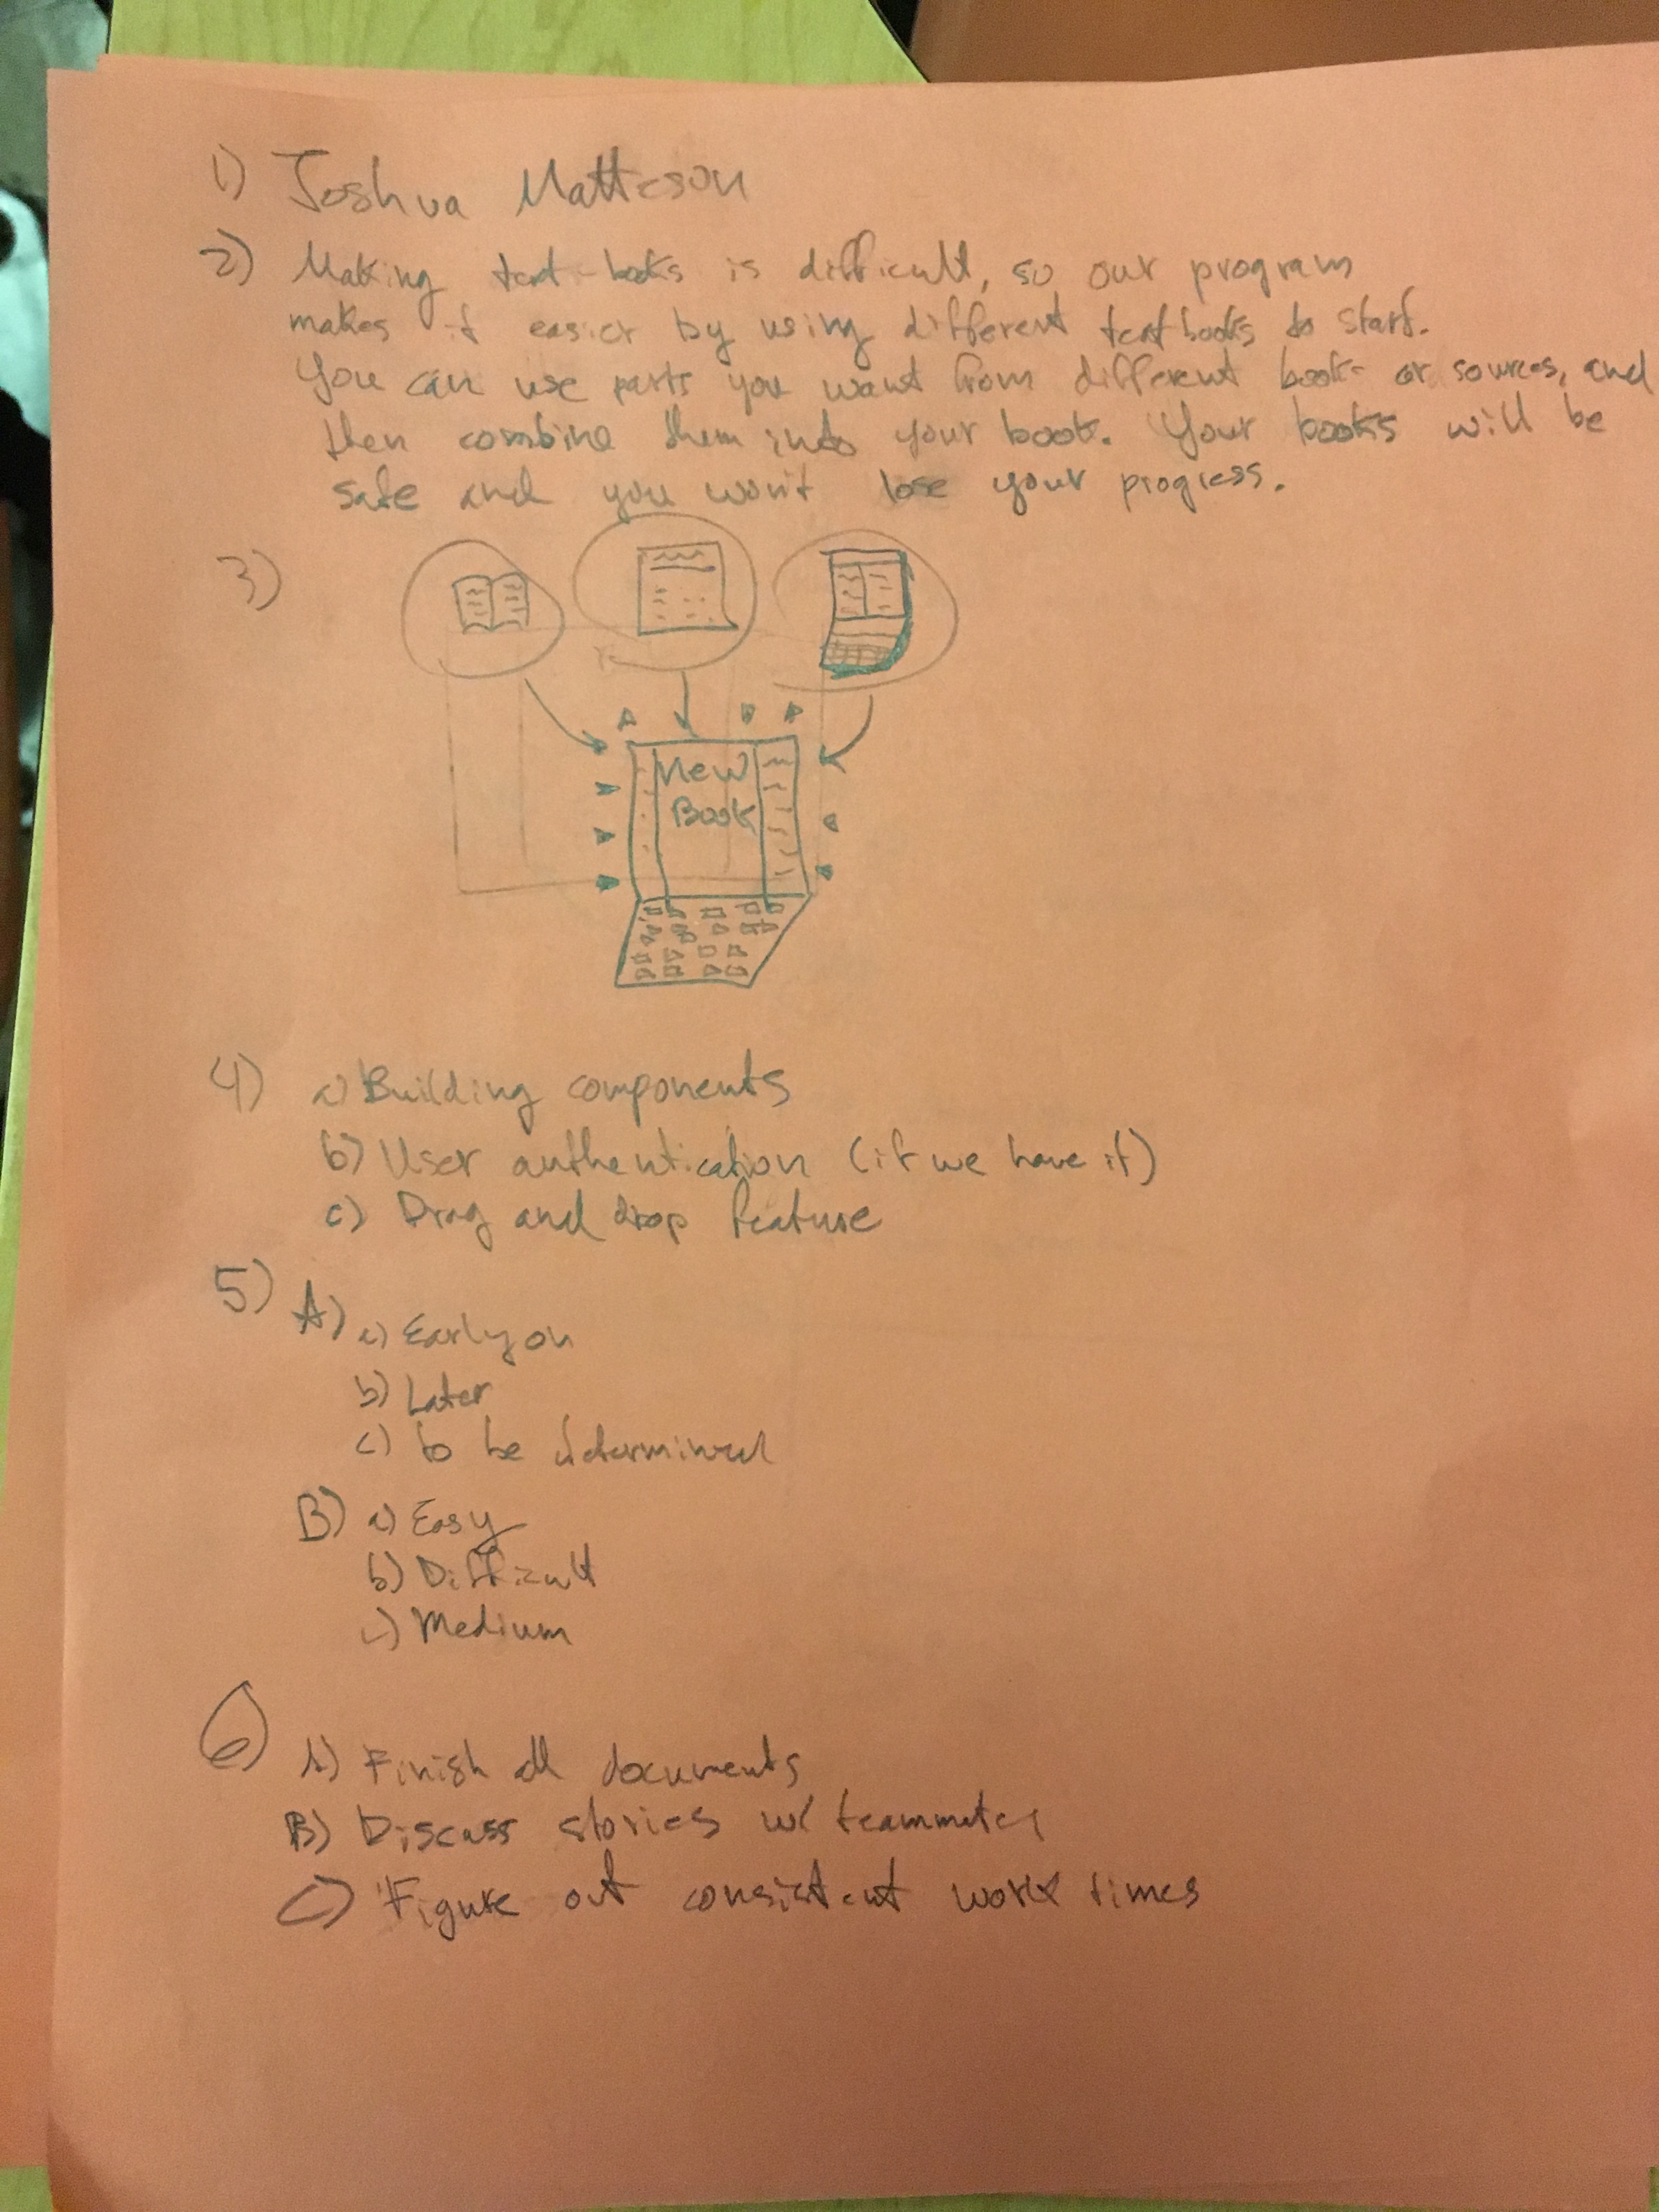 1) Joshua Matteson
2) Making text-books is difficult, so our program
makes it easier by using different textbooks to start.
You can use parts you want from different books or sources, and
then combine them into your book. Your books will be
safe and you won't lose your progress.
3)
New
Book
4) a) Building components
b) User authentication (if we have it)
c) Drag and drop feature
5) A) a) Early on
b) Later
c) to be determined
B) a) Easy
b) Difficult
c) Medium
6) A) Finish all documents
B) Discuss stories w/ teammates
C) Figure out consistent work times